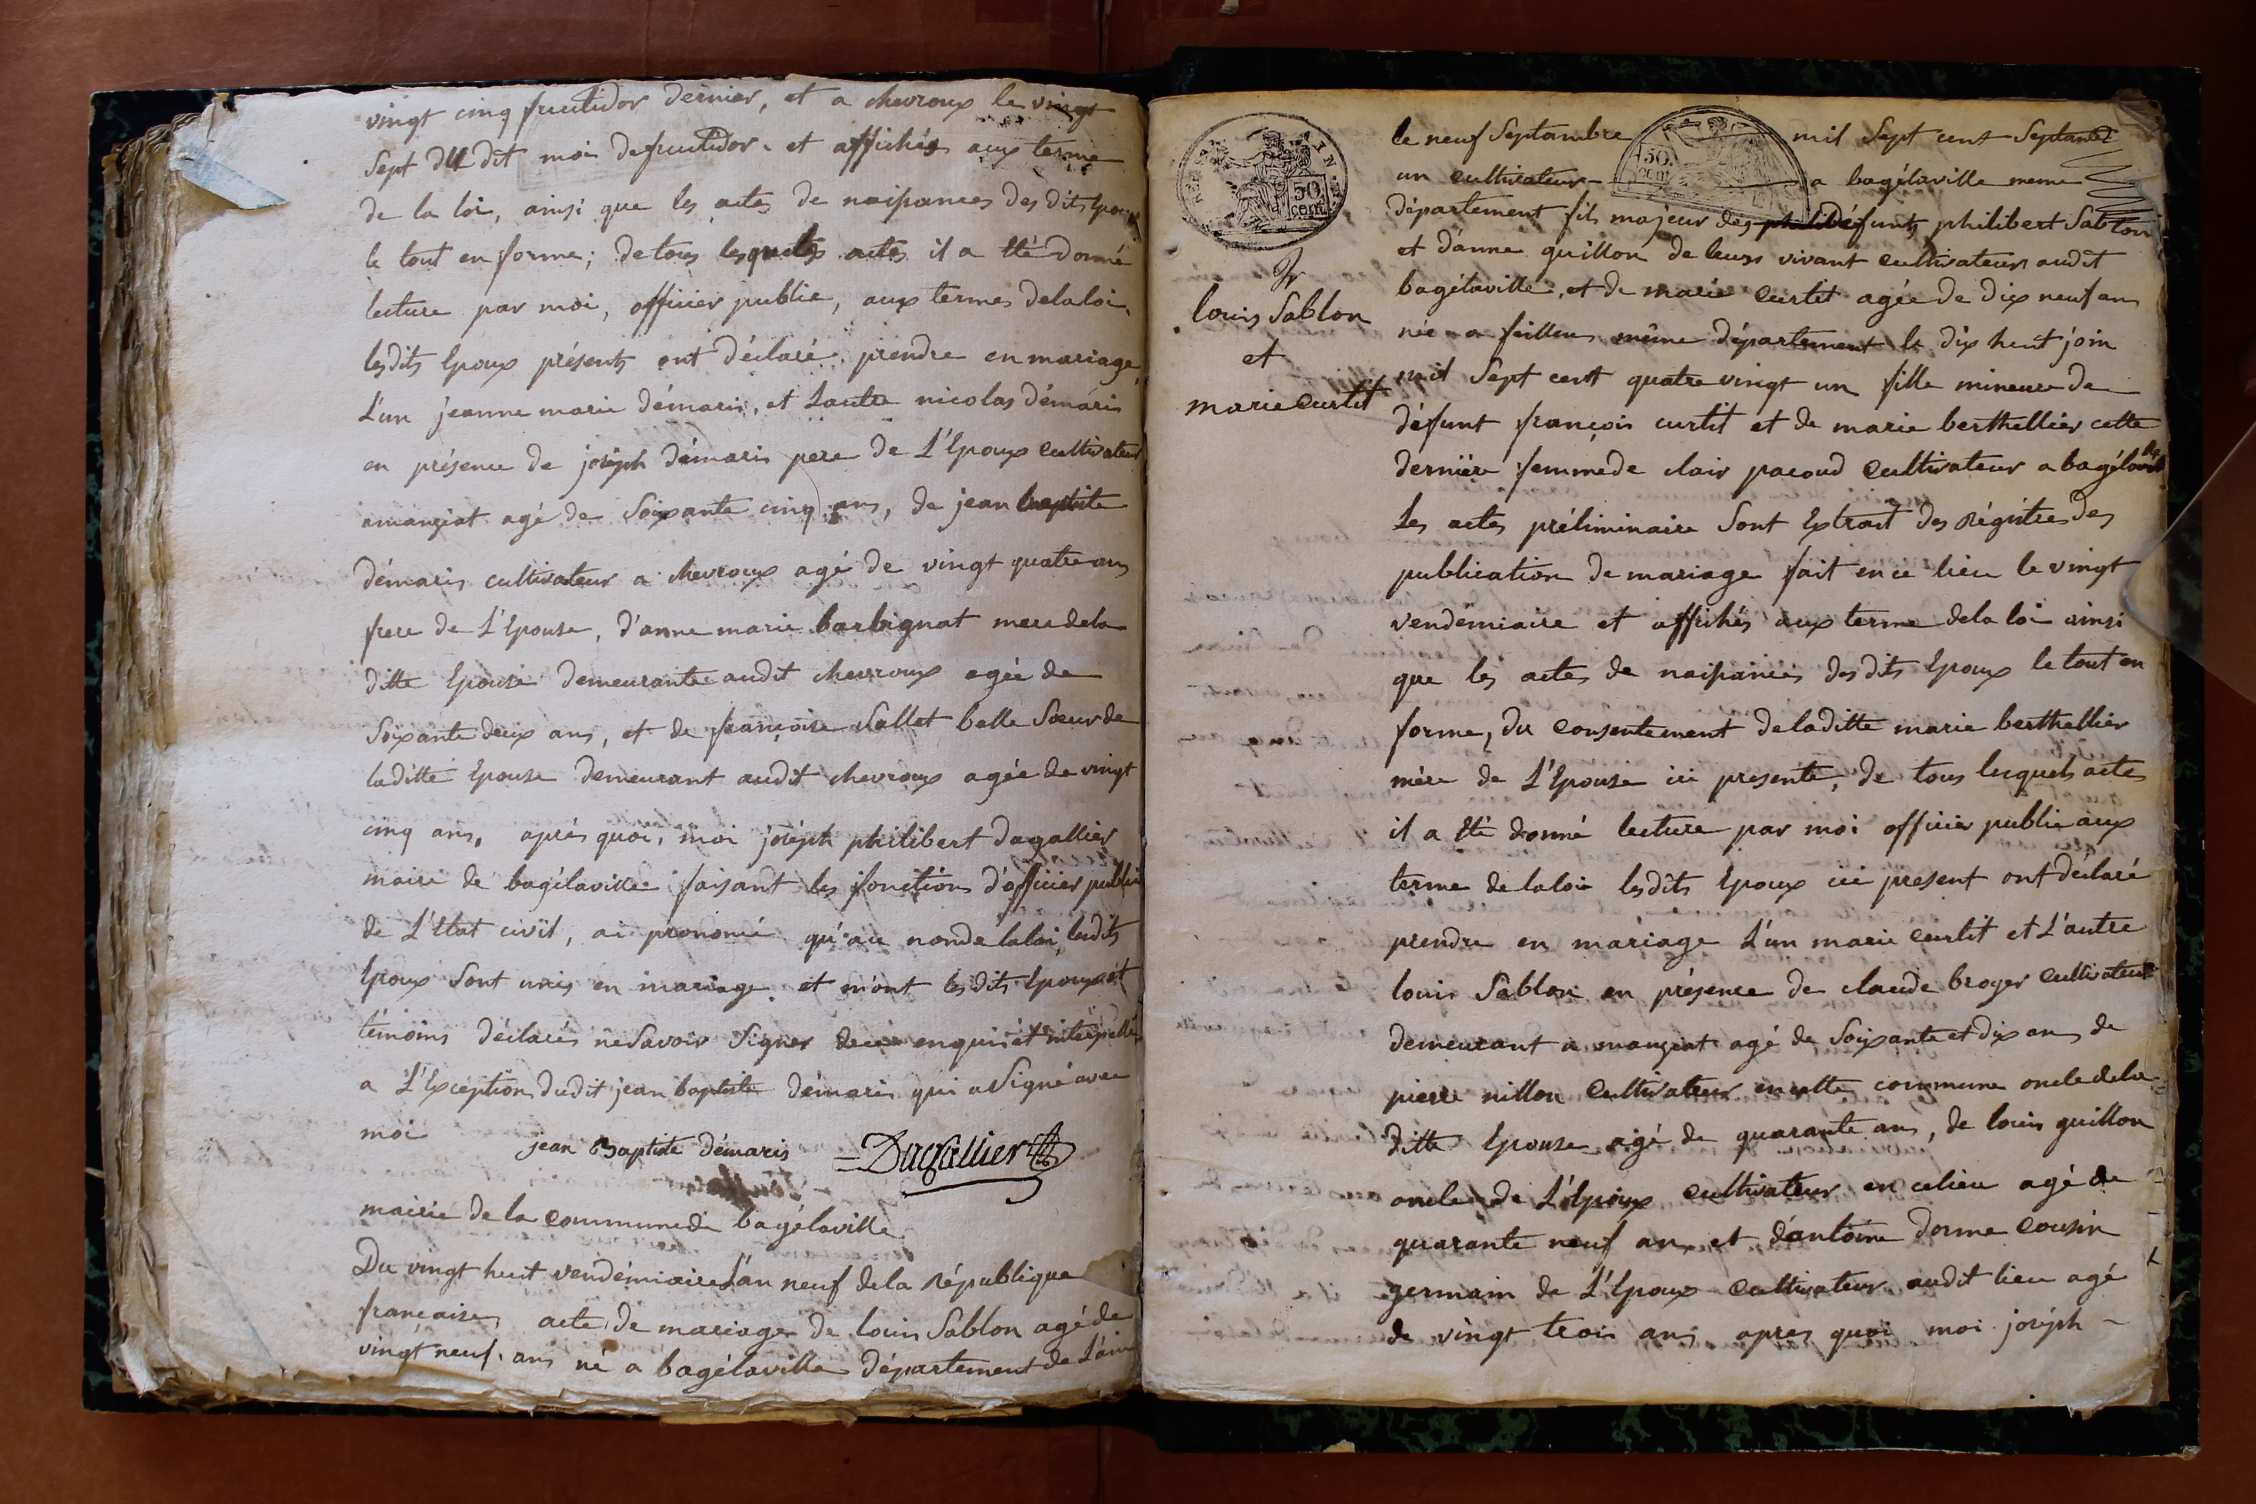 vingt cinq fructidor dernier, et a chevroux le vingt
sept du dit moi de fructidor. et affichés aux terme
de la loi, ainsi que les actes de naissances des dits Epoux
le tout en forme; de tous lesquels actes il a été donné
lecture par moi, officier public, aux termes de la loi.
lesdits Epoux présents ont déclaré prendre en mariage,
L'un jeanne marie démaris, et Lautre nicolas démaris
en présence de joseph démaris pere de L'Epoux cultivateur
a manziat agé de soixante cinq ans, de jean baptiste
démaris cultivateur a chevroux agé de vingt quatre ans
frere de L'Epouse, d'anne marie barbignat mere de la
ditte Epouse demeurante audit chevroux agée de
soixante deux ans, et de françoise sallet belle sœur de
laditte Epouse demeurant audit chevroux agée de vingt
cinq ans, après quoi, moi joséph philibert dagallier
maire de bagélaville faisant les fonctions d'officier public
de L'Etat civil, ai prononcé qu'au nom de la loi, lesdits
Epoux sont unis en mariage. et m'ont les dits Epoux et
témoins déclarés ne savoir signer de ce enquis et interpellés
a L'Exception dudit jean baptiste démaris qui a signé avec
moi
jean Baptiste démaris Dagallier
mairie de la commune de bagélaville
Du vingt huit vendémiaire L'an neuf de la République
française, acte de mariage de louis Sablon agé de
vingt neuf ans né a bagélaville département de L'ain
50 cent.
50. cent
louis Sablon
et
marie curtit
le neuf Septambre mil Sept cent Septante
un cultivateur a bagélaville meme
département fils majeur des défunts philibert Sablon
et d'anne guillon de leurs vivant cultivateurs audit
bagélaville, et de marie curtit agée de dix neuf ans
née a feillens même département le dix huit join
mil Sept cent quatre vingt un fille mineure de
défunt françois curtit et de marie berthellier cette
dernière femme de clair pacoud cultivateur a bagélaville
Les actes préliminaire Sont Extrait des Régistres des
publication de mariage fait en ce lieu le vingt
vendémiaire et affichés aux terme de la loi ainsi
que les actes de naissances des dits Epoux le tout en
forme, du consentement de laditte marie berthellier
mère de L'Epouse ici presente, de tous lesquels actes
il a été donné lecture par moi officier public aux
terme de la loi lesdits Epoux ici present ont déclaré
prendre en mariage L'un marie curtit et L'autre
louis Sablon en présence de claude broyer cultivateur
demeurant a manziat agé de Soixante et dix ans de
pierre nillon cultivateur en cette commune oncle de la
ditte Epouse agé de quarante ans, de louis guillon
oncle de L'Epoux cultivateur en ce lieu agé de
quarante neuf ans et d'antoine dorme cousin
germain de L'Epoux cultivateur audit lieu agé
de vingt trois ans apres quoi moi joséph